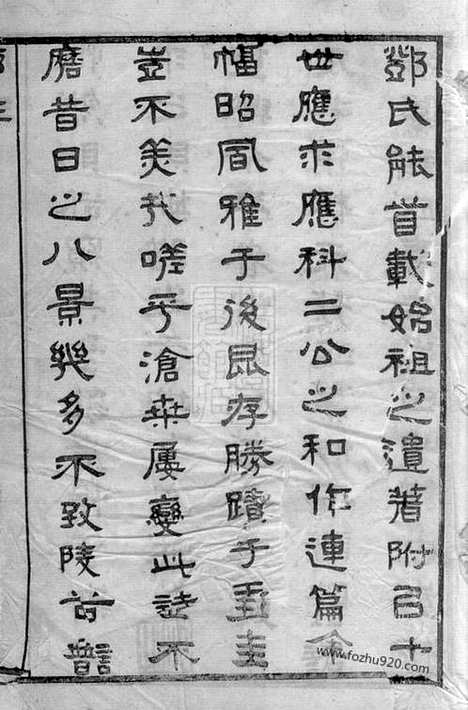 鄧氏能首載始祖之遺著附己十
世應求應科二公之和作連篇
幅昭風雅于後昆存勝蹟于
豈不美哉嗟乎滄桑屢變此不
磨昔日之八景幾多不致陵谷
www.fozhu920.com